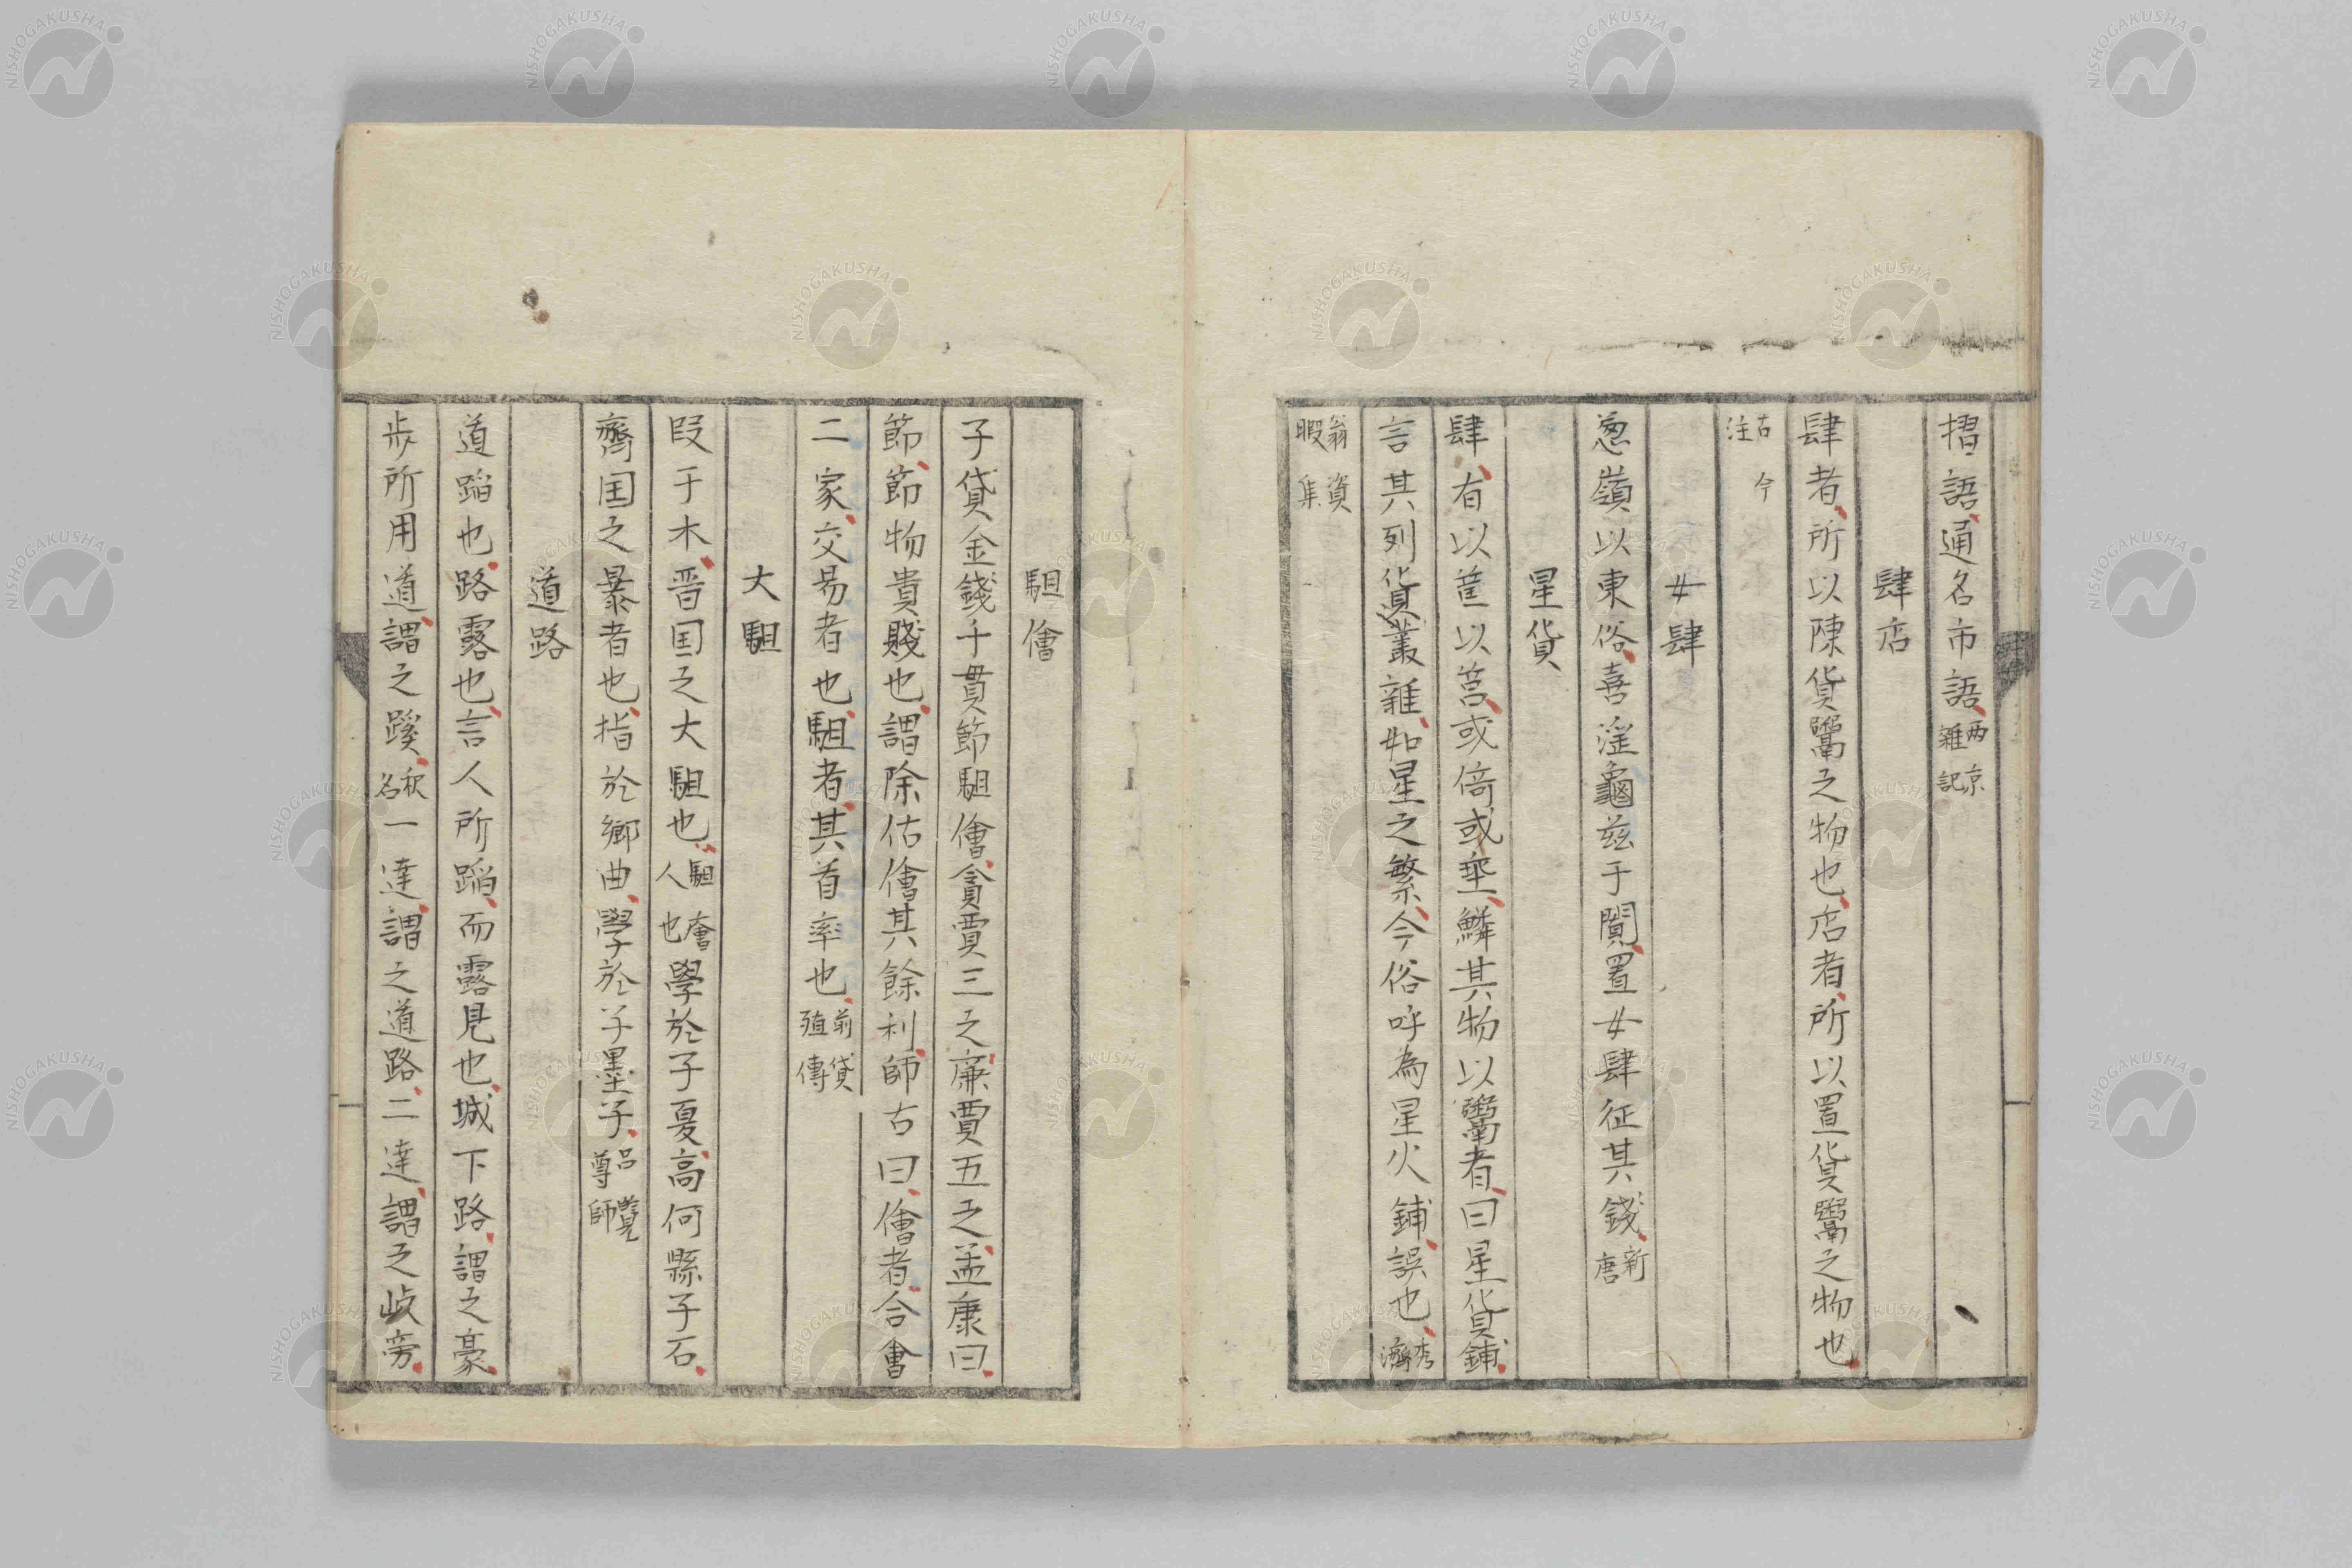 摺語通名市語兩京雜記
肆店
肆者所以陳貨鬻之物也店者所以置貨鬻之物也
古今注
女肆
葱嶺以東俗喜淫龜茲于闐置女肆征其錢新唐
星貨
肆有以筐以筥或倚或垂鱗其物以鬻者曰星貨鋪
言其列貨叢雜如星之繁今俗呼為星火鋪誤也秀濟
翁資暇集
駔儈
子貸金錢千貫節駔儈貪賈三之廉賈五之孟康曰
節節物貴賤也謂除估儈其餘利師古曰儈者合會
二家交易者也駔者其首率也前貨殖傳
大駔
段干木晉国之大駔也駔儈人也學於子夏高何縣子石
齊国之暴者也指於鄉曲學於子墨子呂覽尊師
道路
道蹈也路露也言人所蹈而露見也城下路謂之豪
步所用道謂之蹊釈名一達謂之道路二達謂之岐旁
NISHOGAKUSHA